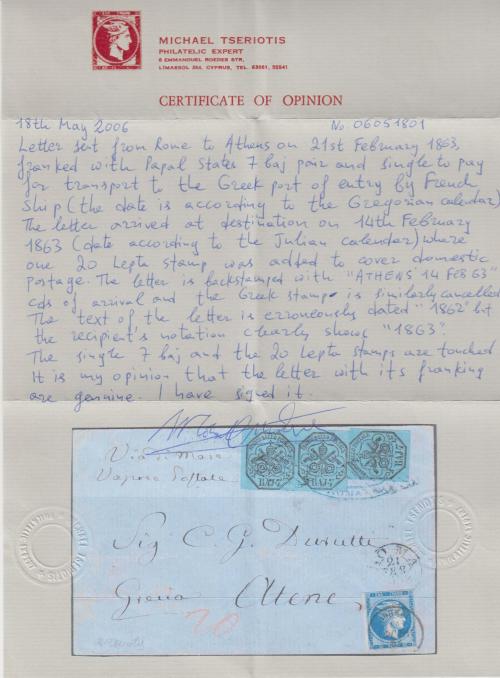 MICHAEL TSERIOTIS
PHILATELIC EXPERT
6 EMMANUEL ROEDES STR,
LIMASSOL CYPRUS, TEL.
CERTIFICATE OF OPINION
18th May 2006 No 06051801
Letter sent from Rome to Athens on 21st February 1863,
franked with Papal States 7 baj pair and single to pay
for transport to the Greek port of entry by French
Ship (the date is according to the Gregorian calendar)
The letter arrived at destination on 14th February
1863 (date according to the Julian calendar) where
one 20 Lepta stamp was added to cover domestic
postage. The letter is backstamped with "ATHENS 14 FEB 63"
cds of arrival and the Greek stamp is similarly cancelled
The text of the letter is erroneously dated "1862" but
the recipient's notation clearly shows "1863".
The single 7 baj and the 20 Lepta stamps are touched
It is my opinion that the letter with its franking
are genuine. I have signed it.
Via di Mare
Vapore Postale
BAJ. 7 BAJ. 7 BAJ. 7
Sig C. G. Durutti
ROMA
21
Grecia Atene
20